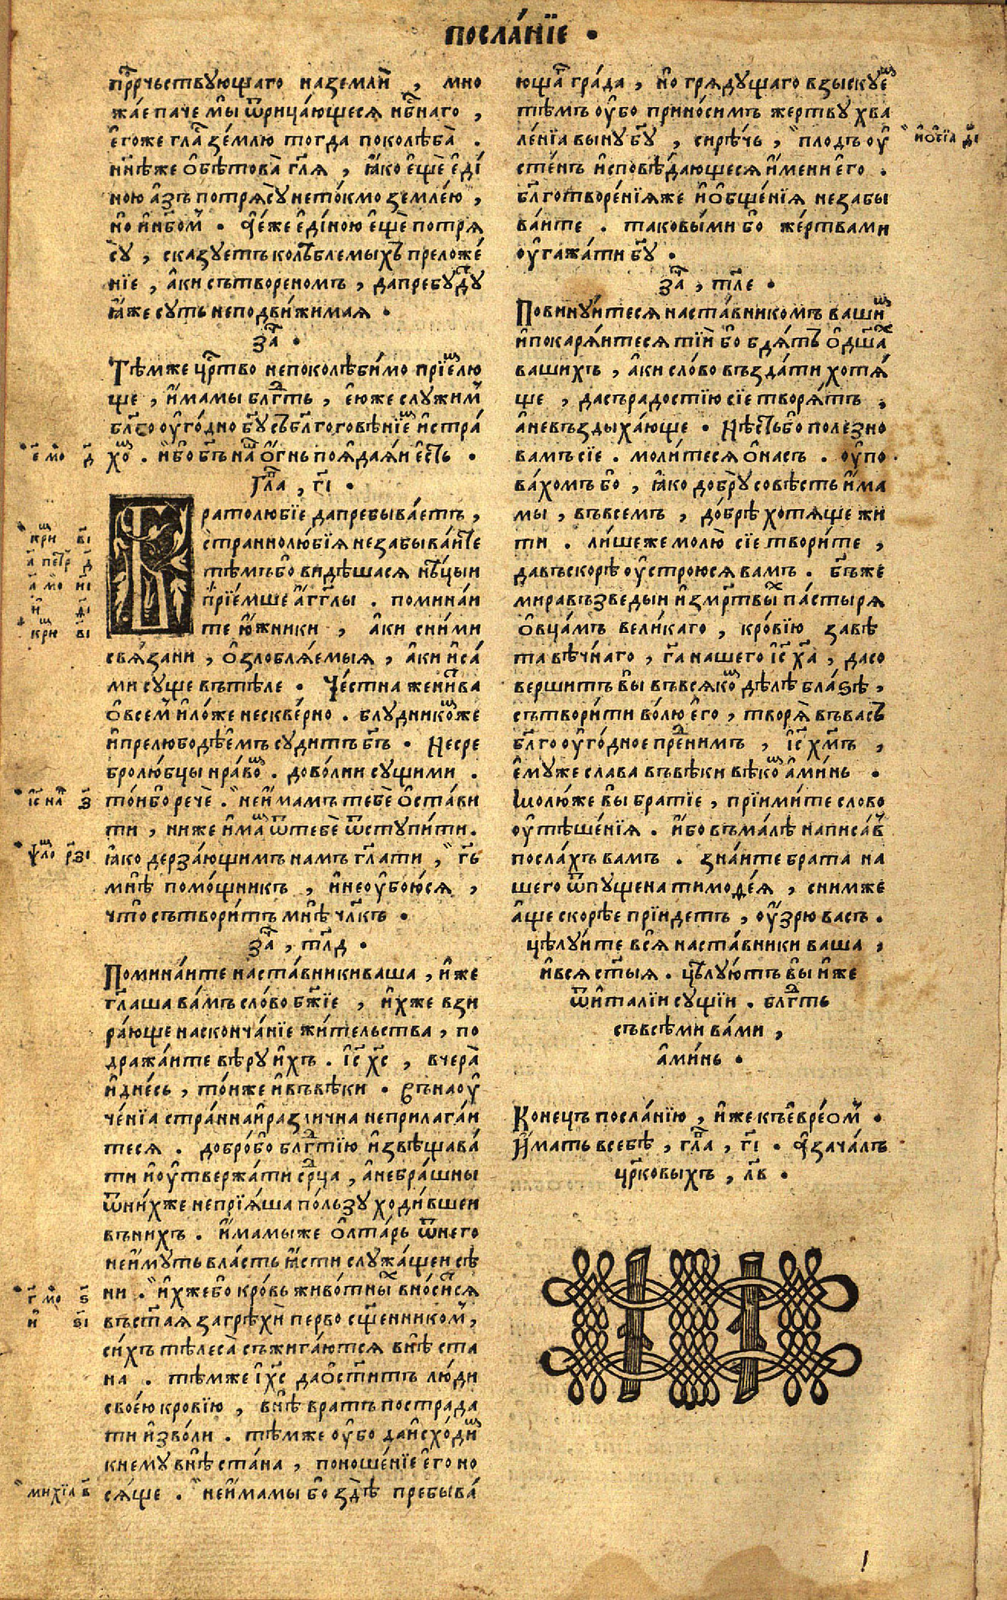 посла́нїе .
прⷪ҇рчьствующаго наземлѝ , мно
жа́е паче мы̀ ѿрица́ющеся нб҃наго ,
е҆гоже гла́ зе́млю тогда поколѣба̀ .
нн҃ѣже ѡ҆бѣтова̀ гл҃я , ꙗ҆́ко е҆щѐ е҆ді́
ною а҆́зъ потрясу̀ нето́кмо земле́ю ,
но́ инб҃ом . є҆́же е҆ді́ною е҆щѐ потря
су̀ , сказуетъ колѣблемыхъ преложе́
нїе , а҆́ки сътвореномъ , дапребу́дꙋ
ꙗ҆́же суть неподви́жимая .
за҄ .
Тѣ́мже црⷭ҇тво непоколѣби́мо прїе́млю
ще , и҆́мамы блгⷣть , е҆ю́же слу́жим
бл҃го оу҆го́дно бг҃у съ бл҃гоговѣ́нїем истра́
хоⷨ . и҆́бо бг҃ъ на́ш ѻ҆́гнь пояда́яи е҆́сть .
гла҃ , г҃і .
Братолю́бїе дапребыва́етъ ,
страннолю́бїя незабыва́ите
тѣ́мъбо ви́дѣшася нѣ́цыи
прїе́мше а҆́гг҃лы . помина́и
те ю҆́жники , а҆́ки сни́ми
свя́зани , ѡ҆злобля́емыя , а҆́ки и҆са́
ми суще въте́ле . Че́стна жени́тва
ѡ҆́всем и҆ло́же нескве́рно . блудникоⷨже
и҆прелюбодѣ́емъ су́дитъ бг҃ъ . Несре
бролю́бцы нра́воⷨ . дово́лни су́щими .
то́ибо речѐ . неи҆́мамъ тебѐ ѡ҆ста́ви
ти , ниже и҆́маⷨ ѿтебѐ ѿступи́ти .
ꙗ҆́ко дерза́ющимъ намъ гл҃ати , гь҃
мнѣ̀ помо́щникъ , и҆неоу҆бою́ся ,
что̀ сътвори́тъ мнѣ̀ чл҃къ .
за҄ , тл҃д .
Помина́ите наста́вникиваша , и҆́же
гл҃аша ва́мъ сло́во бж҃їе , и҆́хже взи
ра́юще наскончанїе жи́тельства , по
дража́ите вѣ́ру и҆́хъ . і҆с҃ хс҃ , вчера̀
и҆дне́сь , то́иже и҆въвѣки . Въ наоу҆
че́нїя стра́ннаи҆ра́зли́чна неприлага́и
теся . добро́бо блгⷣтїю и҆звѣщава́
ти и҆оу҆твержа́ти срⷣца , а҆небра́шны
ѿни́хже непрїя́ша по́льзу ходи́вшеи
въни́хъ . и҆́мамыже ѻ҆лта́рь ѿнего
неи҆му́ть вла́сть ꙗ҆́сти служа́щеи сѣ
ни . и҆́хжебо кро́вь живо́тныⷯ вно́сится
въст҃ая загрѣхѝ перво сщ҃е́нником ,
си́хъ тѣлеса̀ съжига́ются внѣ̀ ста
на . тѣ́мже і҆с҃ даѡ҆ст҃итъ лю́ди
свое́ю кро́вїю , внѣ̀ вратъ пострада
ти и҆зво́ли . тѣ́мже оу҆́бо даи҆схо́диⷨ
кнему внѣ̀ ста́на , поноше́нїе е҆го̀ но
ся́ще . неи҆́мамы бо здѣ̀ пребыва́
ющаⷢ гра́да , но̀ гряду́щаго взыскуеⷨ
тѣ́мъ оу҆́бо прино́симъ же́ртву хва
ле́нїя выну бг҃у , сирѣ́чь , пло́дъ оу҆
сте́нъ и҆сповѣ́дающеся и҆́мени е҆го̀ .
бл҃готворе́нїяже и҆ѻ҆бще́нїя незабы
ва́ите . такова́ыми бо же́ртвами
оу҆гажа́ти бг҃у .
за҄ , тл҃е .
Повину́итеся наста́вникомъ вашиⷨ
и҆покаря́итеся ті́и бо бдя́тъ ѡ҆дш҃аⷯ
ва́шихъ , а҆́ки сло́во възда́ти хотя́
ще , дасъра́достїю сїе творя́тъ ,
а҆невъздыха́юще . Нѣ́стьбо поле́зно
вамъ сїе . моли́теся ѡ҆насъ . оу҆по
ва́хомъ бо , ꙗ҆́ко до́бру со́вѣсть и҆́ма
мы , въвсемъ , до́брѣ хотя́ще жи́
ти . лишеже молю̀ сїе твори́те ,
давъскорѣ оу҆стро́юся вамъ . бг҃ъже
мира възведыи и҆змр҃твыⷯ па́стыря
ѻ҆вца́мъ вели́каго , кро́вїю завѣ
та вѣ́чнаго , гд҃а нашего і҆с҃ ха҃ , дасо
верши́тъ вы̀ въвся́коⷨ дѣлѣ бла́зѣ ,
сътвори́ти во́лю е҆го̀ , творя̀ въвасъ
бл҃го оу҆го́дное пре́нимъ , і҆с҃ хм҃ъ ,
е҆му́же слава въвѣки вѣкоⷨ а҆ми́нь .
Молю́же вы̀ бра́тїе , прїими́те слово
оу҆тѣше́нїя . и҆́бо въма́лѣ написа́в
посла́хъ вамъ . зна́ите бра́та на
шего ѿпуще́на тимоѳе́я , сни́мже
а҆́ще скорѣ́е прїи́детъ , оу҆́зрю васъ .
цѣлу́ите вся̀ наста́вники ваша ,
и҆вся ст҃ы́я . цѣлую́тъ вы̀ и҆́же
ѿи҆та́лїи су́щїи . блгⷣть
съвсѣ́ми ва́ми ,
а҆ми́нь .
Коне́цъ посла́нїю , и҆́же къе҆вре́ом .
И҆́мать всебѣ̀ , гла҃ , г҃і . є҆ зача́лъ
црⷪ҇ко́выхъ , л҃в .